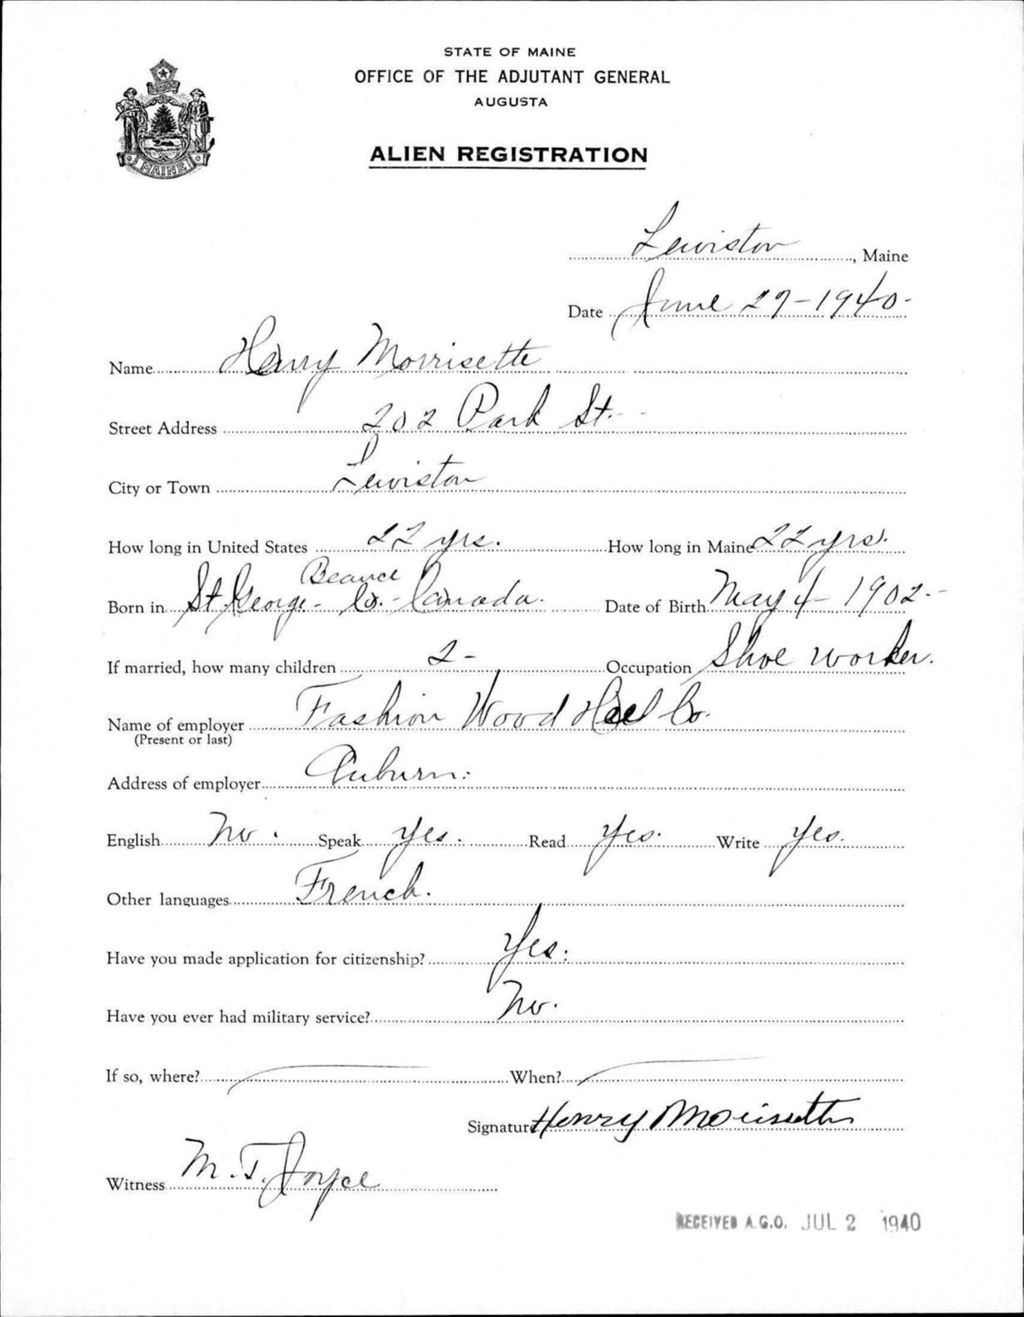 STATE OF MAINE
OFFICE OF THE ADJUTANT GENERAL
AUGUSTA
ALIEN REGISTRATION
MAINE
Lewiston, Maine
Date June 27-1940-
Name Henry Morrisette
Street Address 202 Park St.
City or Town Lewiston
How long in United States 22 yrs. How long in Maine 22 yrs.
Beauce
Born in St. George- Co.- Canada. Date of Birth May 4- 1902-
If married, how many children 2- Occupation Shoe worker.
Name of employer Fashion Wood Heel Co.
(Present or last)
Address of employer Auburn.
English No. Speak Yes. Read Yes. Write Yes.
Other languages French.
Have you made application for citizenship? Yes.
Have you ever had military service? No.
If so, where? When?
Signature Henry Morissette
Witness M. T. Joyce
RECEIVED A.G.O. JUL 2 1940